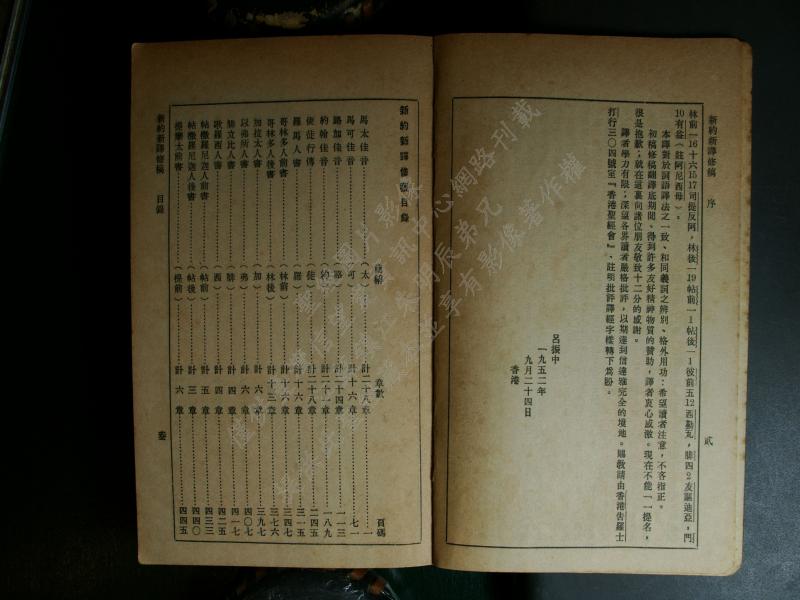 新約新譯修稿 序 貳
林前一16十六15 17司提反阿，林後一19帖前一1帖後一1彼前五12西勒瓦，腓四2友阿迪亞，門
10有益（註阿尼西母）。
本譯對於詞語譯法之一致、和同義詞之辨別、格外用功：希望讀者注意，不吝指正。
初稿修稿翻譯底期間、得到許多友好精神物質的贊助，譯者衷心感激。現在不能一一提名，
很是抱歉；就在這裏向諸位朋友敬致十二分的感謝。
譯者學力有限；深望各界讀者嚴格批評，以期達到信達雅完全的境地。賜教請由香港告羅士
打行三〇四號室『香港聖經會』、註明批評譯經字樣轉下為盼。
呂振中
一九五二年
九月二十四日
香港
新約新譯修稿目錄
簡稱 章數 頁碼
馬太佳音（太）計二十八章 一
馬可佳音（可）計十六章 七一
路加佳音（路）計二十四章 一一三
約翰佳音（約）計二十一章 一八九
使徒行傳（徒）計二十八章 二四五
羅馬人書（羅）計十六章 三一五
哥林多人前書（林前）計十六章 三四七
哥林多人後書（林後）計十三章 三七六
加拉太人書（加）計六章 三九七
以弗所人書（弗）計六章 四〇七
腓立比人書（腓）計四章 四一七
歌羅西人書（西）計四章 四二五
帖撒羅尼迦人前書（帖前）計五章 四三三
帖撒羅尼迦人後書（帖後）計三章 四四〇
提摩太前書（提前）計六章 四四五
新約新譯修稿 目錄 叁